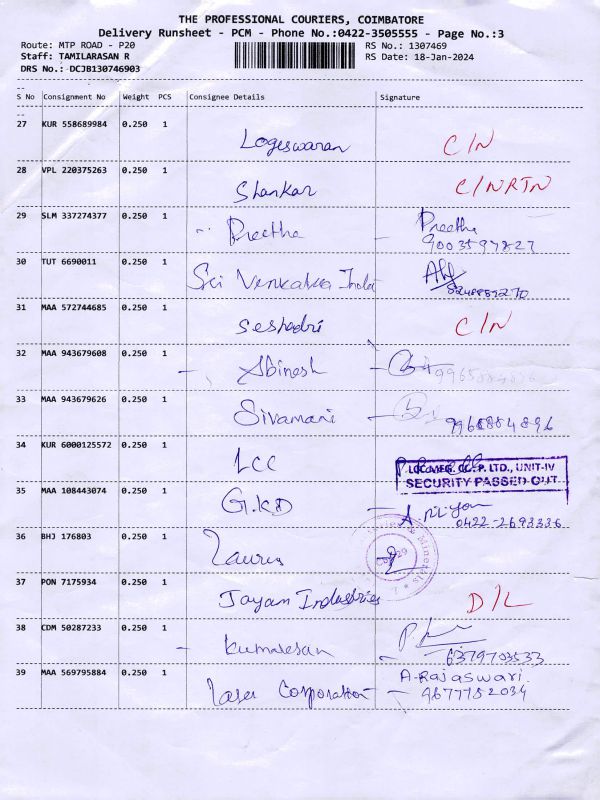 THE PROFESSIONAL COURIERS, COIMBATORE
Delivery Runsheet - PCM - Phone No.:0422-3505555 - Page No.:3
Route: MTP ROAD - P20
RS No.: 1307469
Staff: TAMILARASAN R
RS Date: 18-Jan-2024
DRS No.: DCJB130746903
S No Consignment No Weight PCS Consignee Details Signature
27 KUR 558689984 0.250 1 Logeswaran C/N
28 VPL 220375263 0.250 1 Shankar C/NRTN
29 SLM 337274377 0.250 1 Preetha Preetha
9003597827
30 TUT 6690011 0.250 1 Sri
31 MAA 572744685 0.250 1 Seshadri C/N
32 MAA 943679608 0.250 1 Abinesh
33 MAA 943679626 0.250 1 Sivamani
34 KUR 6000125572 0.250 1 LCC P. LTD., UNIT-IV
SECURITY PASSED OUT
35 MAA 108443074 0.250 1 G.KD
0422-2693336
36 BHJ 176803 0.250 1
37 PON 7175934 0.250 1 Jayam Industries D/L
38 CDM 50287233 0.250 1 Kumaresan
6379703533
39 MAA 569795884 0.250 1 Laser Corporation A-Rajaswari.
9677752034